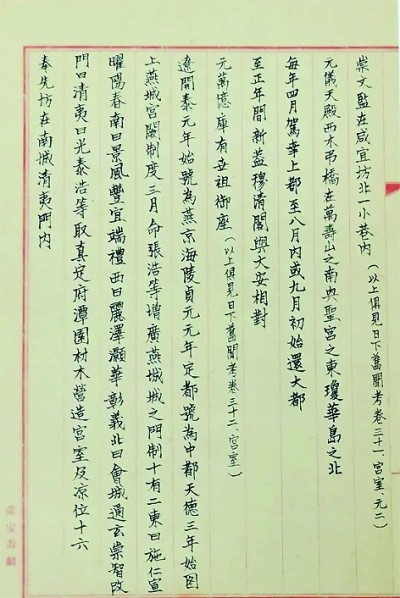 崇文監在咸宜坊北一小巷內
（以上俱見日下舊聞考卷三十一、宮室、元二）
元儀天殿西木吊橋在萬壽山之南與聖宮之東瓊華島之北
每年四月駕幸上都至八月內或九月初始還大都
至正年間新蓋穆清閣與大安相對
元萬億庫有世祖御座（以上俱見日下舊聞考卷三十二、宮室）
遼開泰元年始號為燕京海陵貞元元年定都號為中都天德三年始圖
上燕城宮闕制度三月命張浩等增廣燕城城之門制十有二東曰施仁宣
曜陽春南曰景風豐宜端禮西曰麗澤灝華彰義北曰會城通玄崇智改
門曰清夷曰光泰浩等取真定府潭園材木營造宮室及涼位十六
奉先坊在南城清夷門內